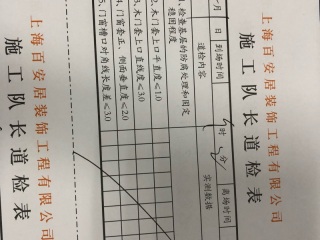 上海百安居装饰工程有限公司
施工队长道检表
月 日 到场时间 时 分 离场时间
道检内容 实测数据
1、检查基层的防腐处理和固定
稳固程度
2、木门套上口平直度≤1.0
3、木门套上口直线度≤3.0
4、门窗套正、侧面垂直度≤2.0
5、门窗槽口对角线长度差≤3.0
上海百安居装饰工程有限公司
施工队长道检表